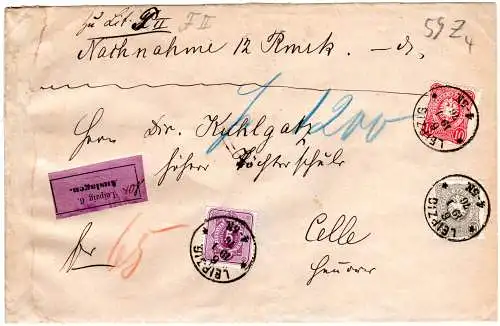 zu Lit. P II F II
59 Z4
Nachnahme 12 Rmk. — ds.
1200
Herrn Dr.
höhere Töchterschule
Celle
Hannover
frei
65
Leipzig 6.
Auslagen.
LEIPZIG
LEIPZIG
LEIPZIG